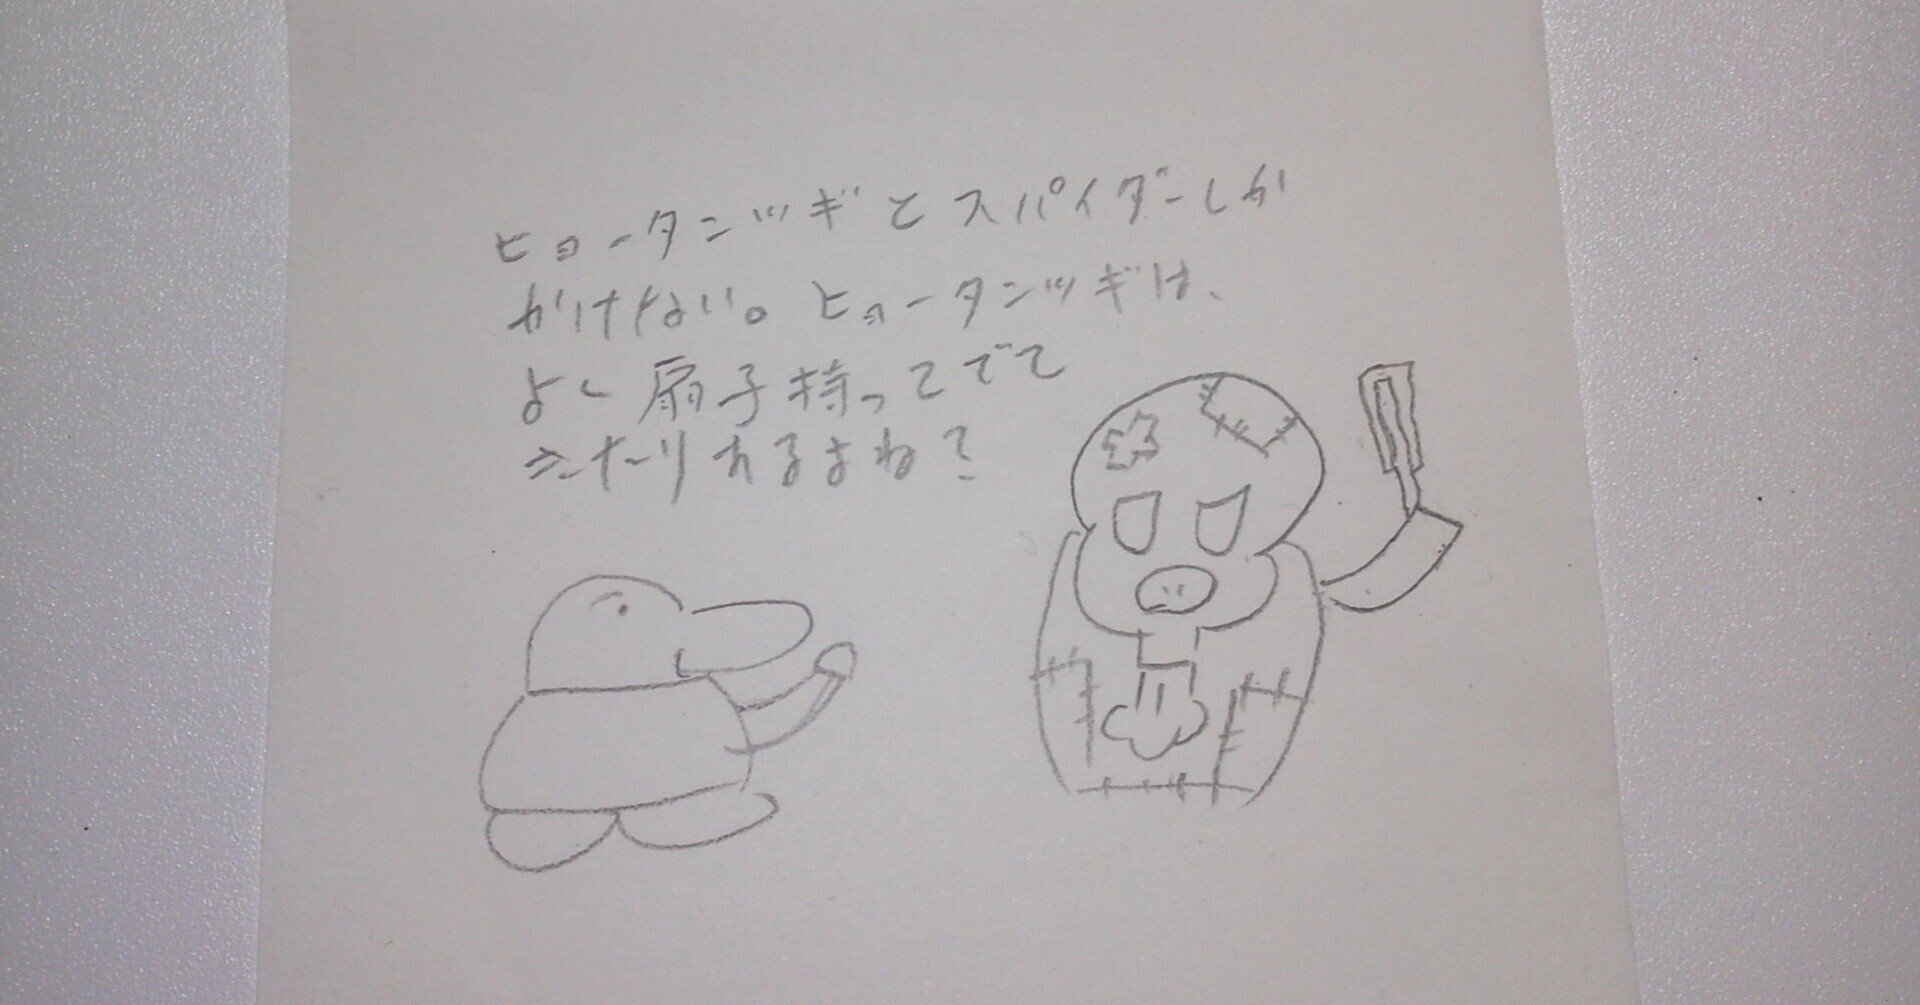 ヒョータンツギとスパイダーしか
かけない。ヒョータンツギは、
よく扇子持ってでて
たりするよね？